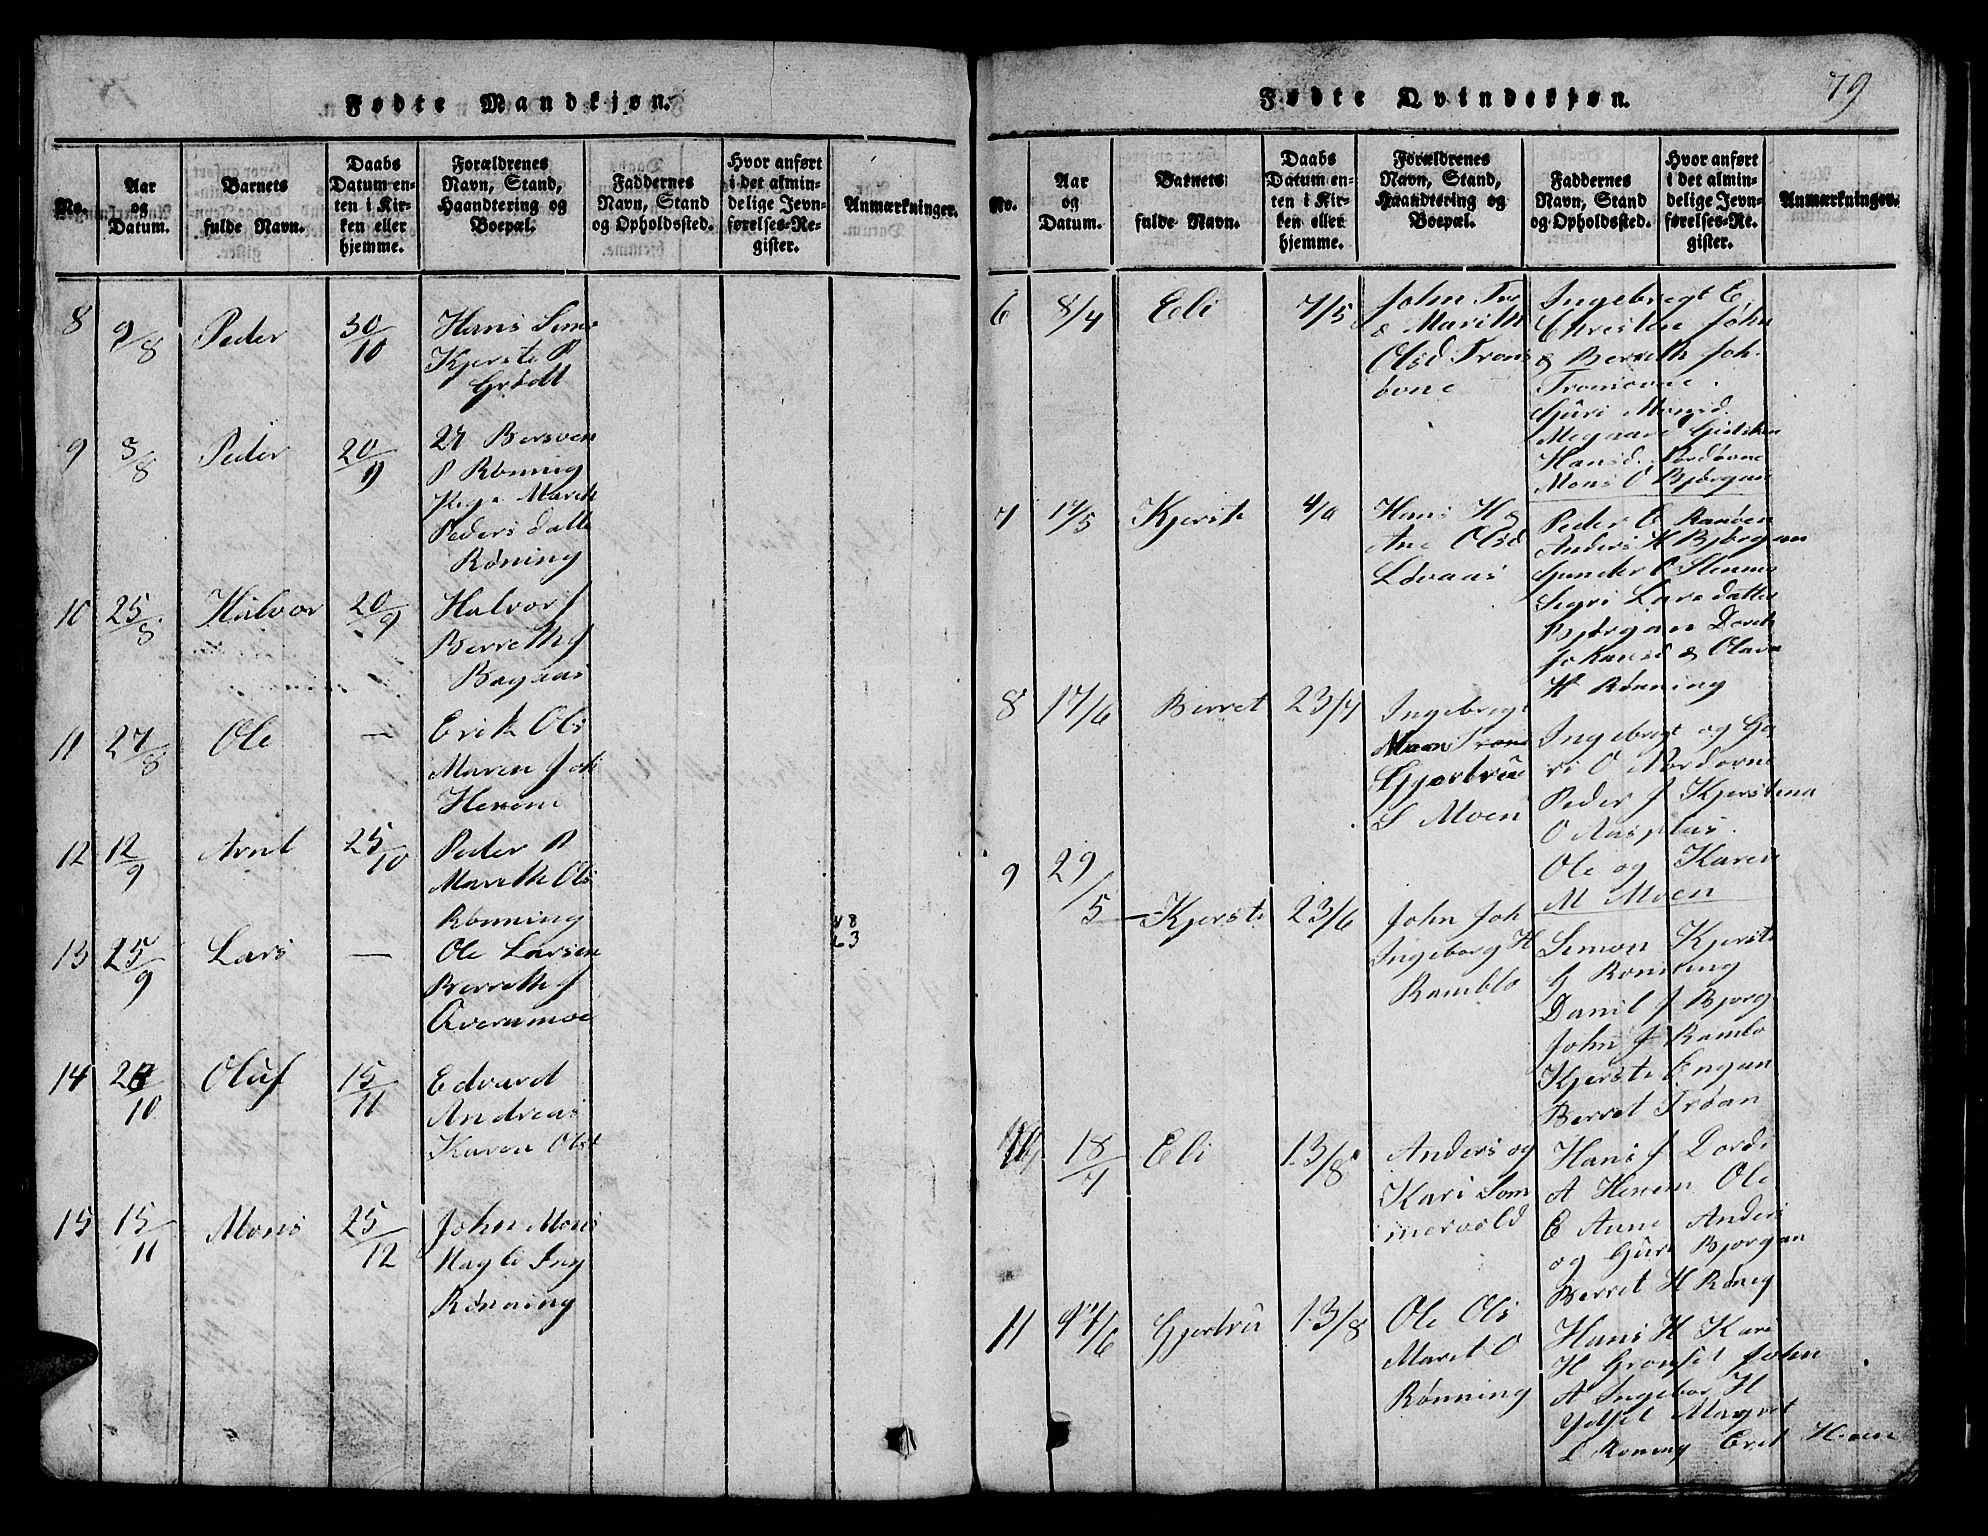 Fødte Mandkjøn.
No.
Aar og Datum.
Barnets fulde Navn.
Daabs Datum enten i Kirken eller hjemme.
Forældrenes Navn, Stand, Haandtering og Boepæl.
Faddernes Navn, Stand og Opholdssted.
Hvor anført i det almindelige Jevnførelses-Register.
Anmærkninger.
8 9/8 Peder 30/10 Hans
Kjersti P
Grødt
9 3/8 Peder 20/9 Bersven
P Rønning
Marith
Pedersdatte
Røning
10 25/8 Halvor 20/9 Halvor J
Berreth J
Bagaas
11 27/8 Ole — Erik Ols
Maren Joh
Hexem
12 12/9 Arnt 25/10 Peder P
Mareth Ols
Rønning
13 25/9 Lars — Ole Larsen
Berreth J
14 /10 Oluf 15/11 Edvard
Andreas
Karen Olst
15 15/11 Mons 25/12 John Mons
Ing
Rønning
79
Fødte Qvindekjøn.
No.
Aar og Datum.
Barnets fulde Navn.
Daabs Datum enten i Kirken eller hjemme.
Forældrenes Navn, Stand, Haandtering og Boepæl.
Faddernes Navn, Stand og Opholdssted.
Hvor anført i det almindelige Jevnførelses-Register.
Anmærkninger.
6 8/4 Eli 7/5 John Tro
& Marith
Olsd Trons
ovne
Ingebrigt E,
Christen John
& Berreth Joh.
Tronsovne.
Guri Monsd.
Megaare
Hansd. Nordovne
Mons O Bjørgan
7 17/5 Kjersti Hans H &
Ane Olsd
Løvaas
Peder E Ranøen
Anders H Bjørgan
Gunder O
Larsdatter
Bjørgan Dorth
& Olava
H Rønning
8 17/6 Berret 23/7 Ingebrigt
S Moen
Ingebrigt og Gu
ri O Nordovne
Peder J Kjerstina
O Aasplas.
Ole og Karen
M Moen
9 29/5 Kjersti 23/6 John Joh
Ingeborg H
Ramblo
Simon Kjersti
G Rønning
Danil J Bjorg
John J Rambo
Kjersti Engan
Berret Trøan
10 18/7 Eli 13/8 Anders og
Kari Som
mervold
Hans J Dordi
A Hexem Ole
E Aune Anders
og Guri Bjorgan
Berret H Røneg
11 /6 Gjertru 13/8 Ole Ols
Maret O
Rønning
Hans H Kari
H Grønset John
A Ingebor H
Ydset Margret
L Roning Eret